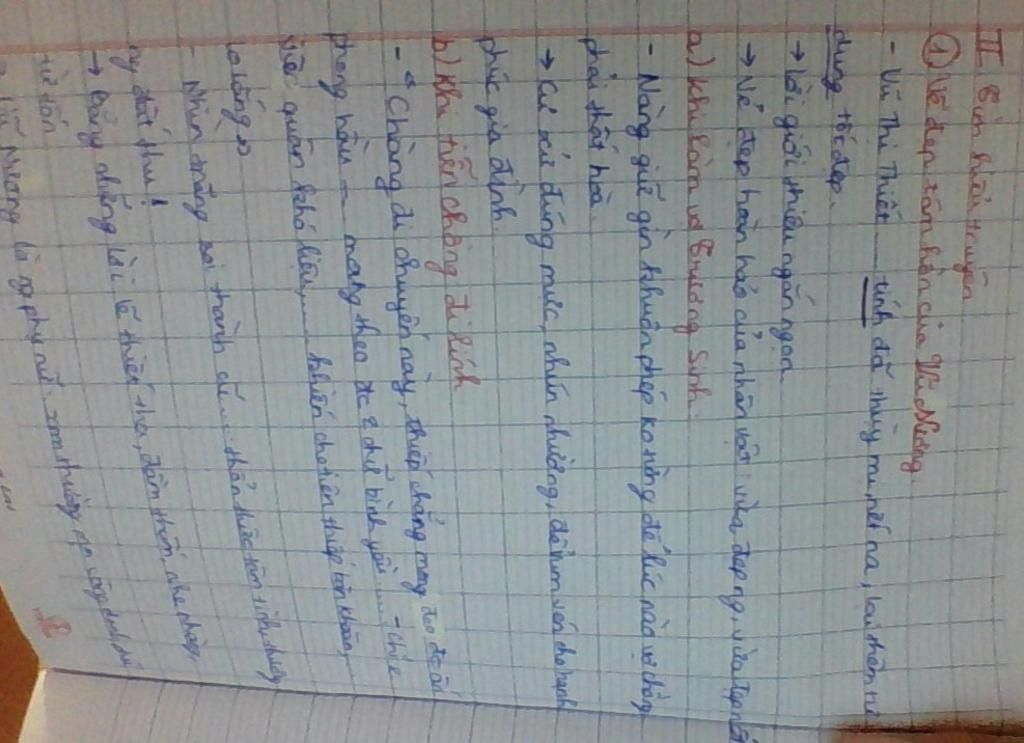 II Tìm hiểu truyện
① Vẻ đẹp tâm hồn của Vũ Nương.
- Vũ Thị Thiết ... tính đã thùy mị, nết na, lại thêm tư
dung tốt đẹp.
→ Lời giới thiệu ngắn gọn
→ Vẻ đẹp hoàn hảo của nhân vật: vừa đẹp ng, vừa đẹp nết
a) Khi làm vợ Trương Sinh.
- Nàng giữ gìn khuôn phép ko từng để lúc nào vợ chồng
phải thất hòa.
→ Cư xử đúng mực, nhún nhường, để vun vén cho hạnh
phúc gia đình.
b) Khi tiễn chồng đi lính
- "Chàng đi chuyến này, thiếp chẳng mong đeo đc ấn
phong hầu ... mang theo đc 2 chữ bình yên ... - Chỉ e
việc quân khó liệu, ... khiến cho tiện thiếp băn khoăn,
lo lắng"
- Nhìn trăng soi thành cũ ... thổn thức tâm tình, thương
ng đất thú!
→ Bằng những lời lẽ thiết tha, đằm thắm, nhẹ nhàng,
từ tốn
Vũ Nương là ng phụ nữ xem thường